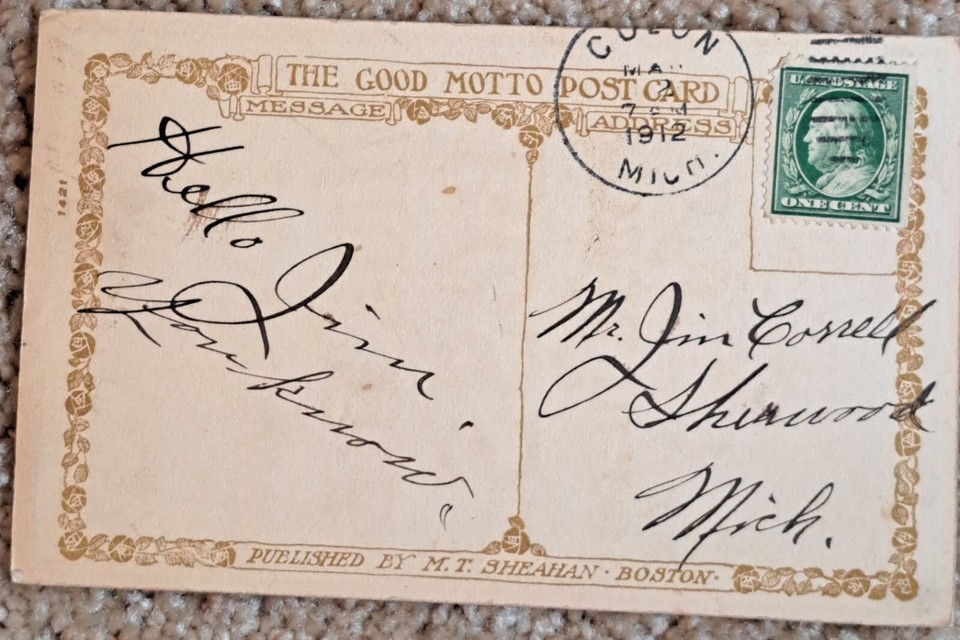 THE GOOD MOTTO POST CARD
MESSAGE
ADDRESS
COLON
2
1912
MICH.
U.S. POSTAGE
ONE CENT
1421
Hello Jim.
You know
Mr. Jim Correll
Sherwood
Mich.
PUBLISHED BY M.T. SHEAHAN · BOSTON ·